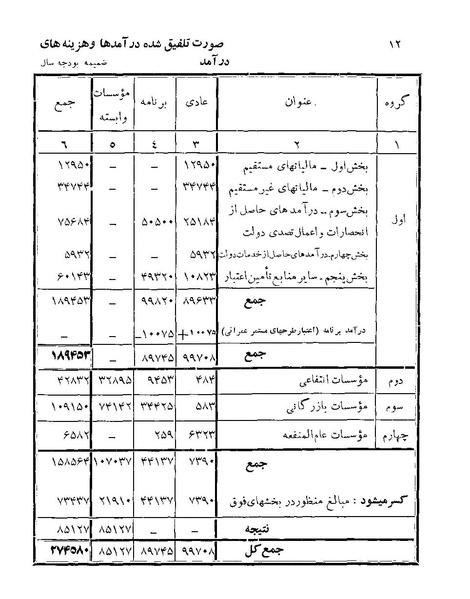 ۱۲
صورت تلفیق شده درآمدها و هزینه های
درآمد
ضمیمه بودجه سال
گروه عنوان عادی برنامه مؤسسات وابسته جمع
۱ ۲ ۳ ٤ ٥ ٦
اول
بخش اول ـ مالیاتهای مستقیم ۱۲۹۵۰ – – ۱۲۹۵۰
بخش دوم ـ مالیاتهای غیر مستقیم ۳۴۷۴۴ – – ۳۴۷۴۴
بخش سوم ـ درآمدهای حاصل از
انحصارات و اعمال تصدی دولت ۲۵۱۸۴ ۵۰۵۰۰ – ۷۵۶۸۴
بخش چهارم ـ درآمدهای حاصل از خدمات دولت ۵۹۳۲ – – ۵۹۳۲
بخش پنجم ـ سایر منابع تأمین اعتبار ۱۰۸۲۳ ۴۹۳۲۰ – ۶۰۱۴۳
جمع ۸۹۶۳۳ ۹۹۸۲۰ – ۱۸۹۴۵۳
درآمد برنامه (اعتبار طرحهای مستمر عمرانی) +۱۰۰۷۵ –۱۰۰۷۵ – –
جمع ۹۹۷۰۸ ۸۹۷۴۵ – ۱۸۹۴۵۳
دوم مؤسسات انتفاعی ۴۸۴ ۹۴۵۳ ۳۲۸۹۵ ۴۲۸۳۲
سوم مؤسسات بازرگانی ۵۸۳ ۳۴۴۲۵ ۷۴۱۴۲ ۱۰۹۱۵۰
چهارم مؤسسات عام‌المنفعه ۶۳۲۳ ۲۵۹ – ۶۵۸۲
جمع ۷۳۹۰ ۴۴۱۳۷ ۱۰۷۰۳۷ ۱۵۸۵۶۴
کسر میشود : مبالغ منظور در بخشهای فوق ۷۳۹۰ ۴۴۱۳۷ ۲۱۹۱۰ ۷۳۴۳۷
نتیجه – – ۸۵۱۲۷ ۸۵۱۲۷
جمع کل ۹۹۷۰۸ ۸۹۷۴۵ ۸۵۱۲۷ ۲۷۴۵۸۰